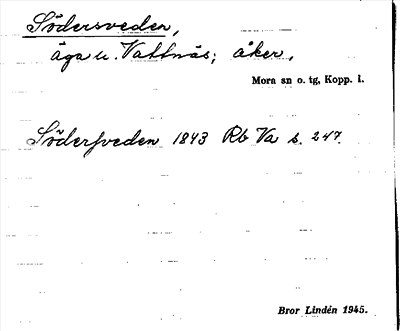 Södersveden,
äga u. Vattnäs; åker,
Mora sn o. tg, Kopp. l.
Söderſveden 1843 Rb Va s. 247.
Bror Lindén 1945.